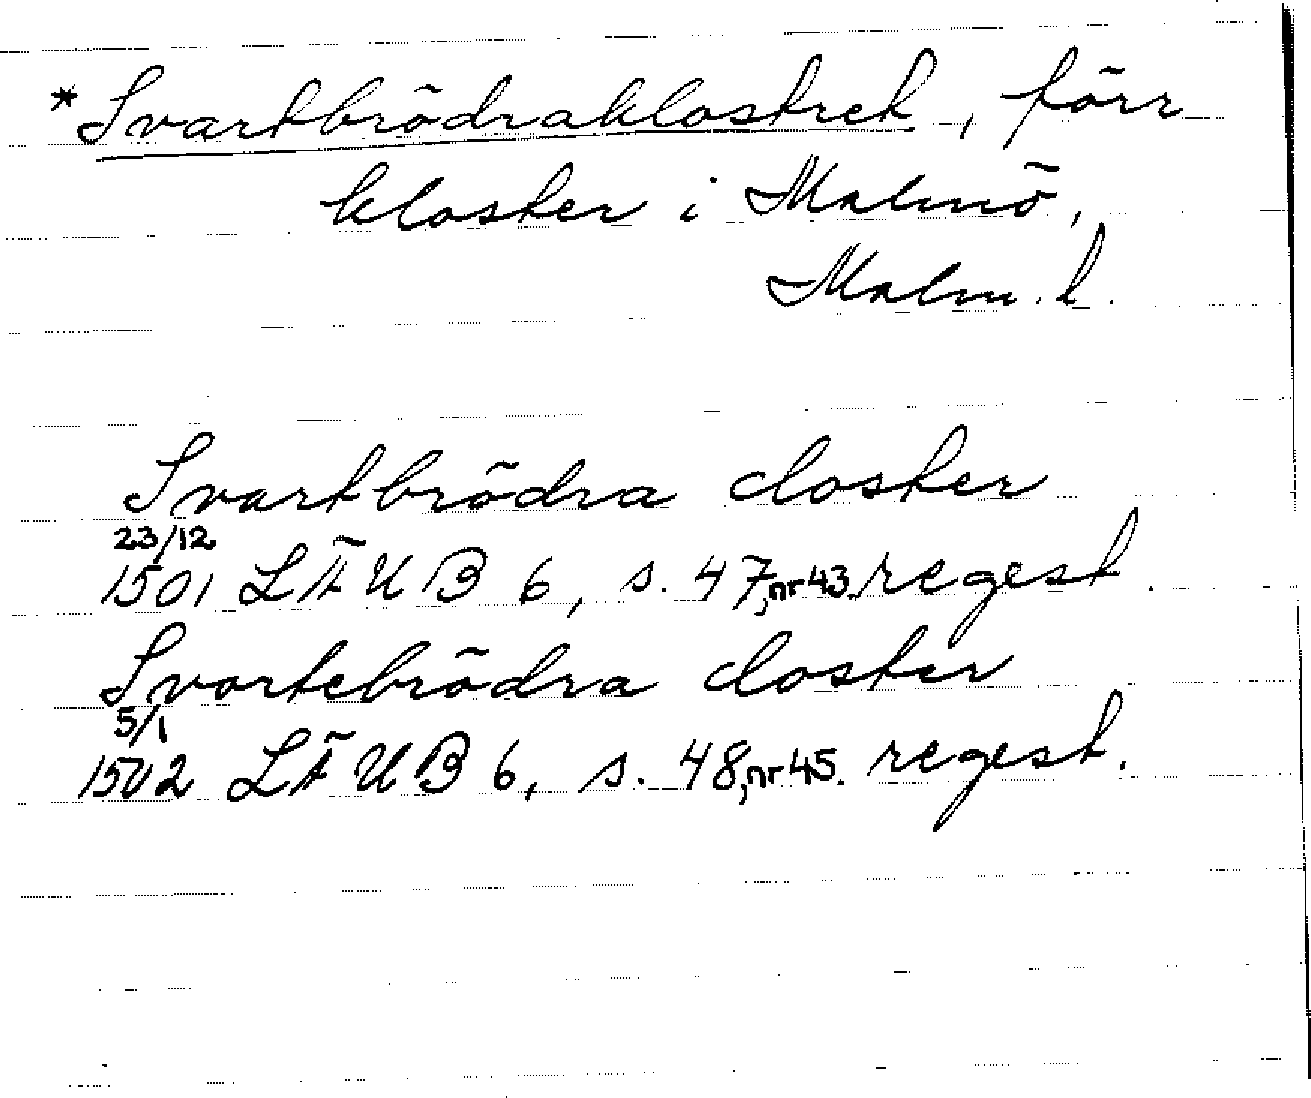 *Svartbrödraklostret, förr
kloster i Malmö,
Malm. h.
Svartbrödra closter
23/12
1501 LÄUB 6, s. 47, nr 43. regest.
Svortebrödra closter
5/1
1502 LÄUB 6, s. 48, nr 45. regest.